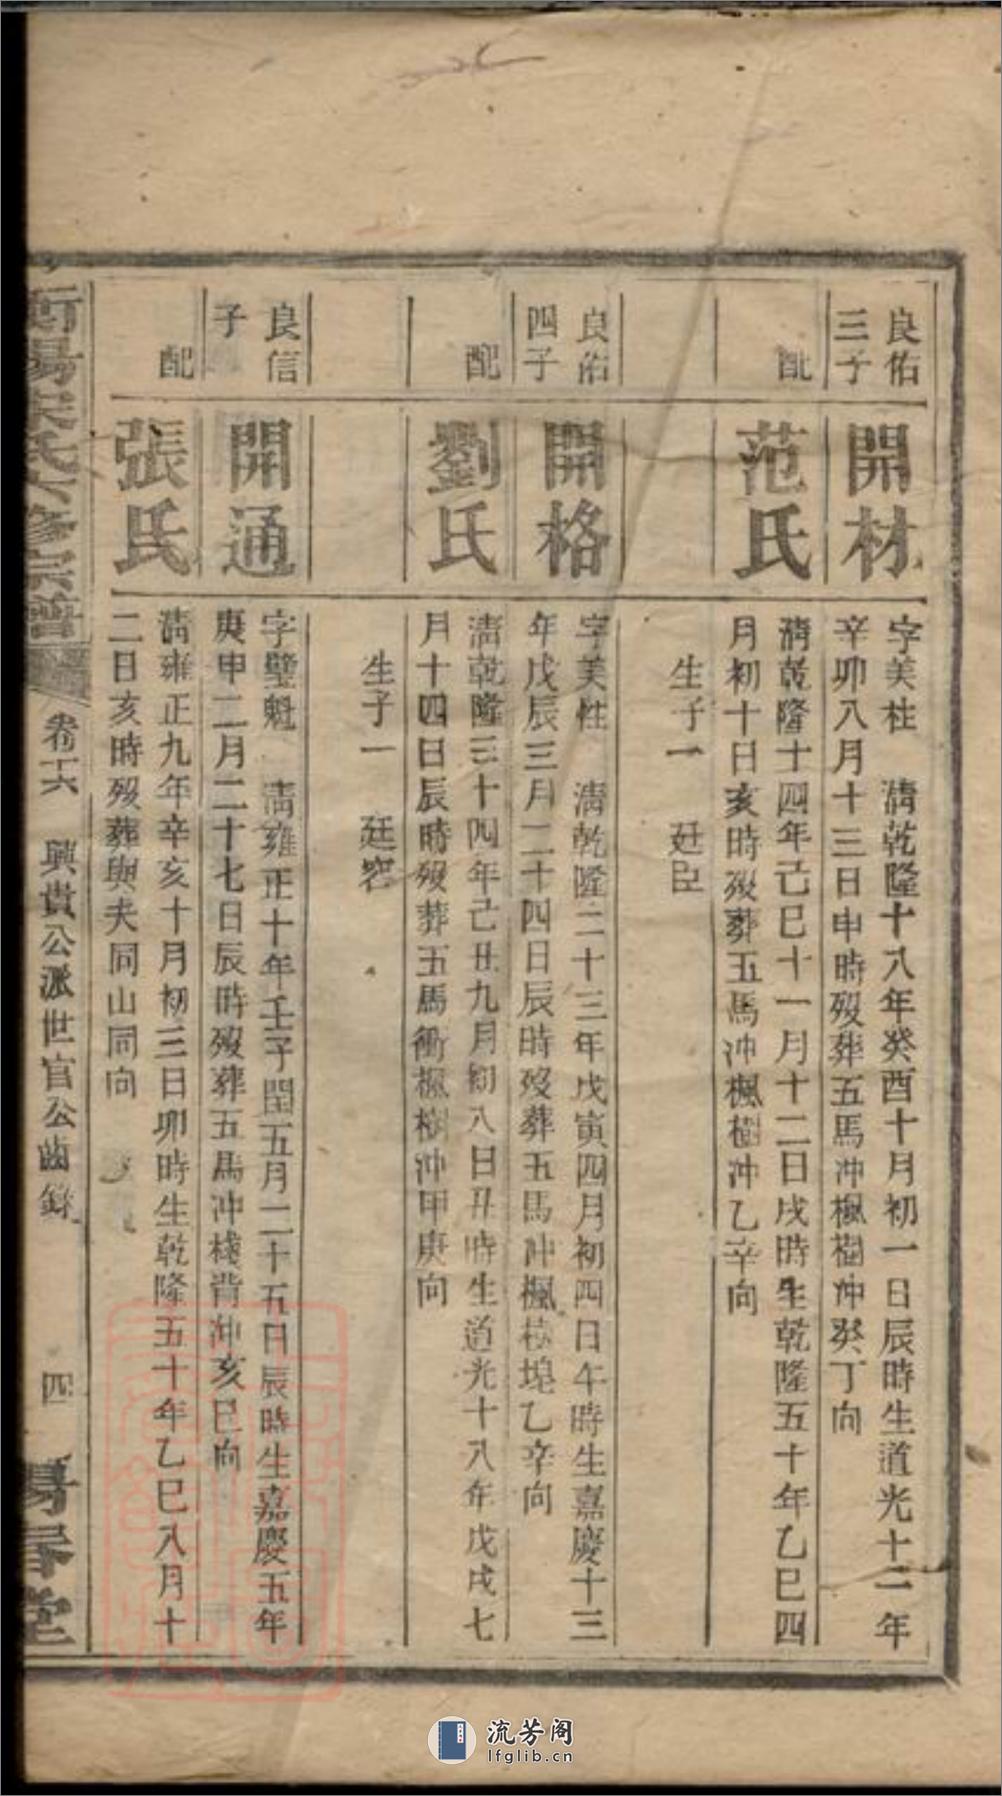 良佑
三子
開材
字美柱　清乾隆十八年癸酉十月初一日辰時生道光十二年
辛卯八月十三日申時歿葬五馬冲楓樹冲癸丁向
配
范氏
清乾隆十四年己巳十一月十二日戌時生乾隆五十年乙巳四
月初十日亥時歿葬五馬冲楓樹冲乙辛向
生子一　廷臣
良佑
四子
開格
字美性　清乾隆二十三年戊寅四月初四日午時生嘉慶十三
年戊辰三月二十四日辰時歿葬五馬冲楓樹堝乙辛向
配
劉氏
清乾隆三十四年己丑九月初八日丑時生道光十八年戊戌七
月十四日辰時歿葬五馬衝楓樹沖甲庚向
生子一　廷
良信
子
開通
字璧魁　清雍正十年壬子閏五月二十五日辰時生嘉慶五年
庚申二月二十七日辰時歿葬五馬冲棧背冲亥巳向
配
張氏
清雍正九年辛亥十月初三日卯時生乾隆五十年乙巳八月十
二日亥時歿葬與夫同山同向
衡陽宋氏六修宗譜
卷十六　興貴公派世官公齒錄
四
易春堂
流芳阁
lfglib.cn